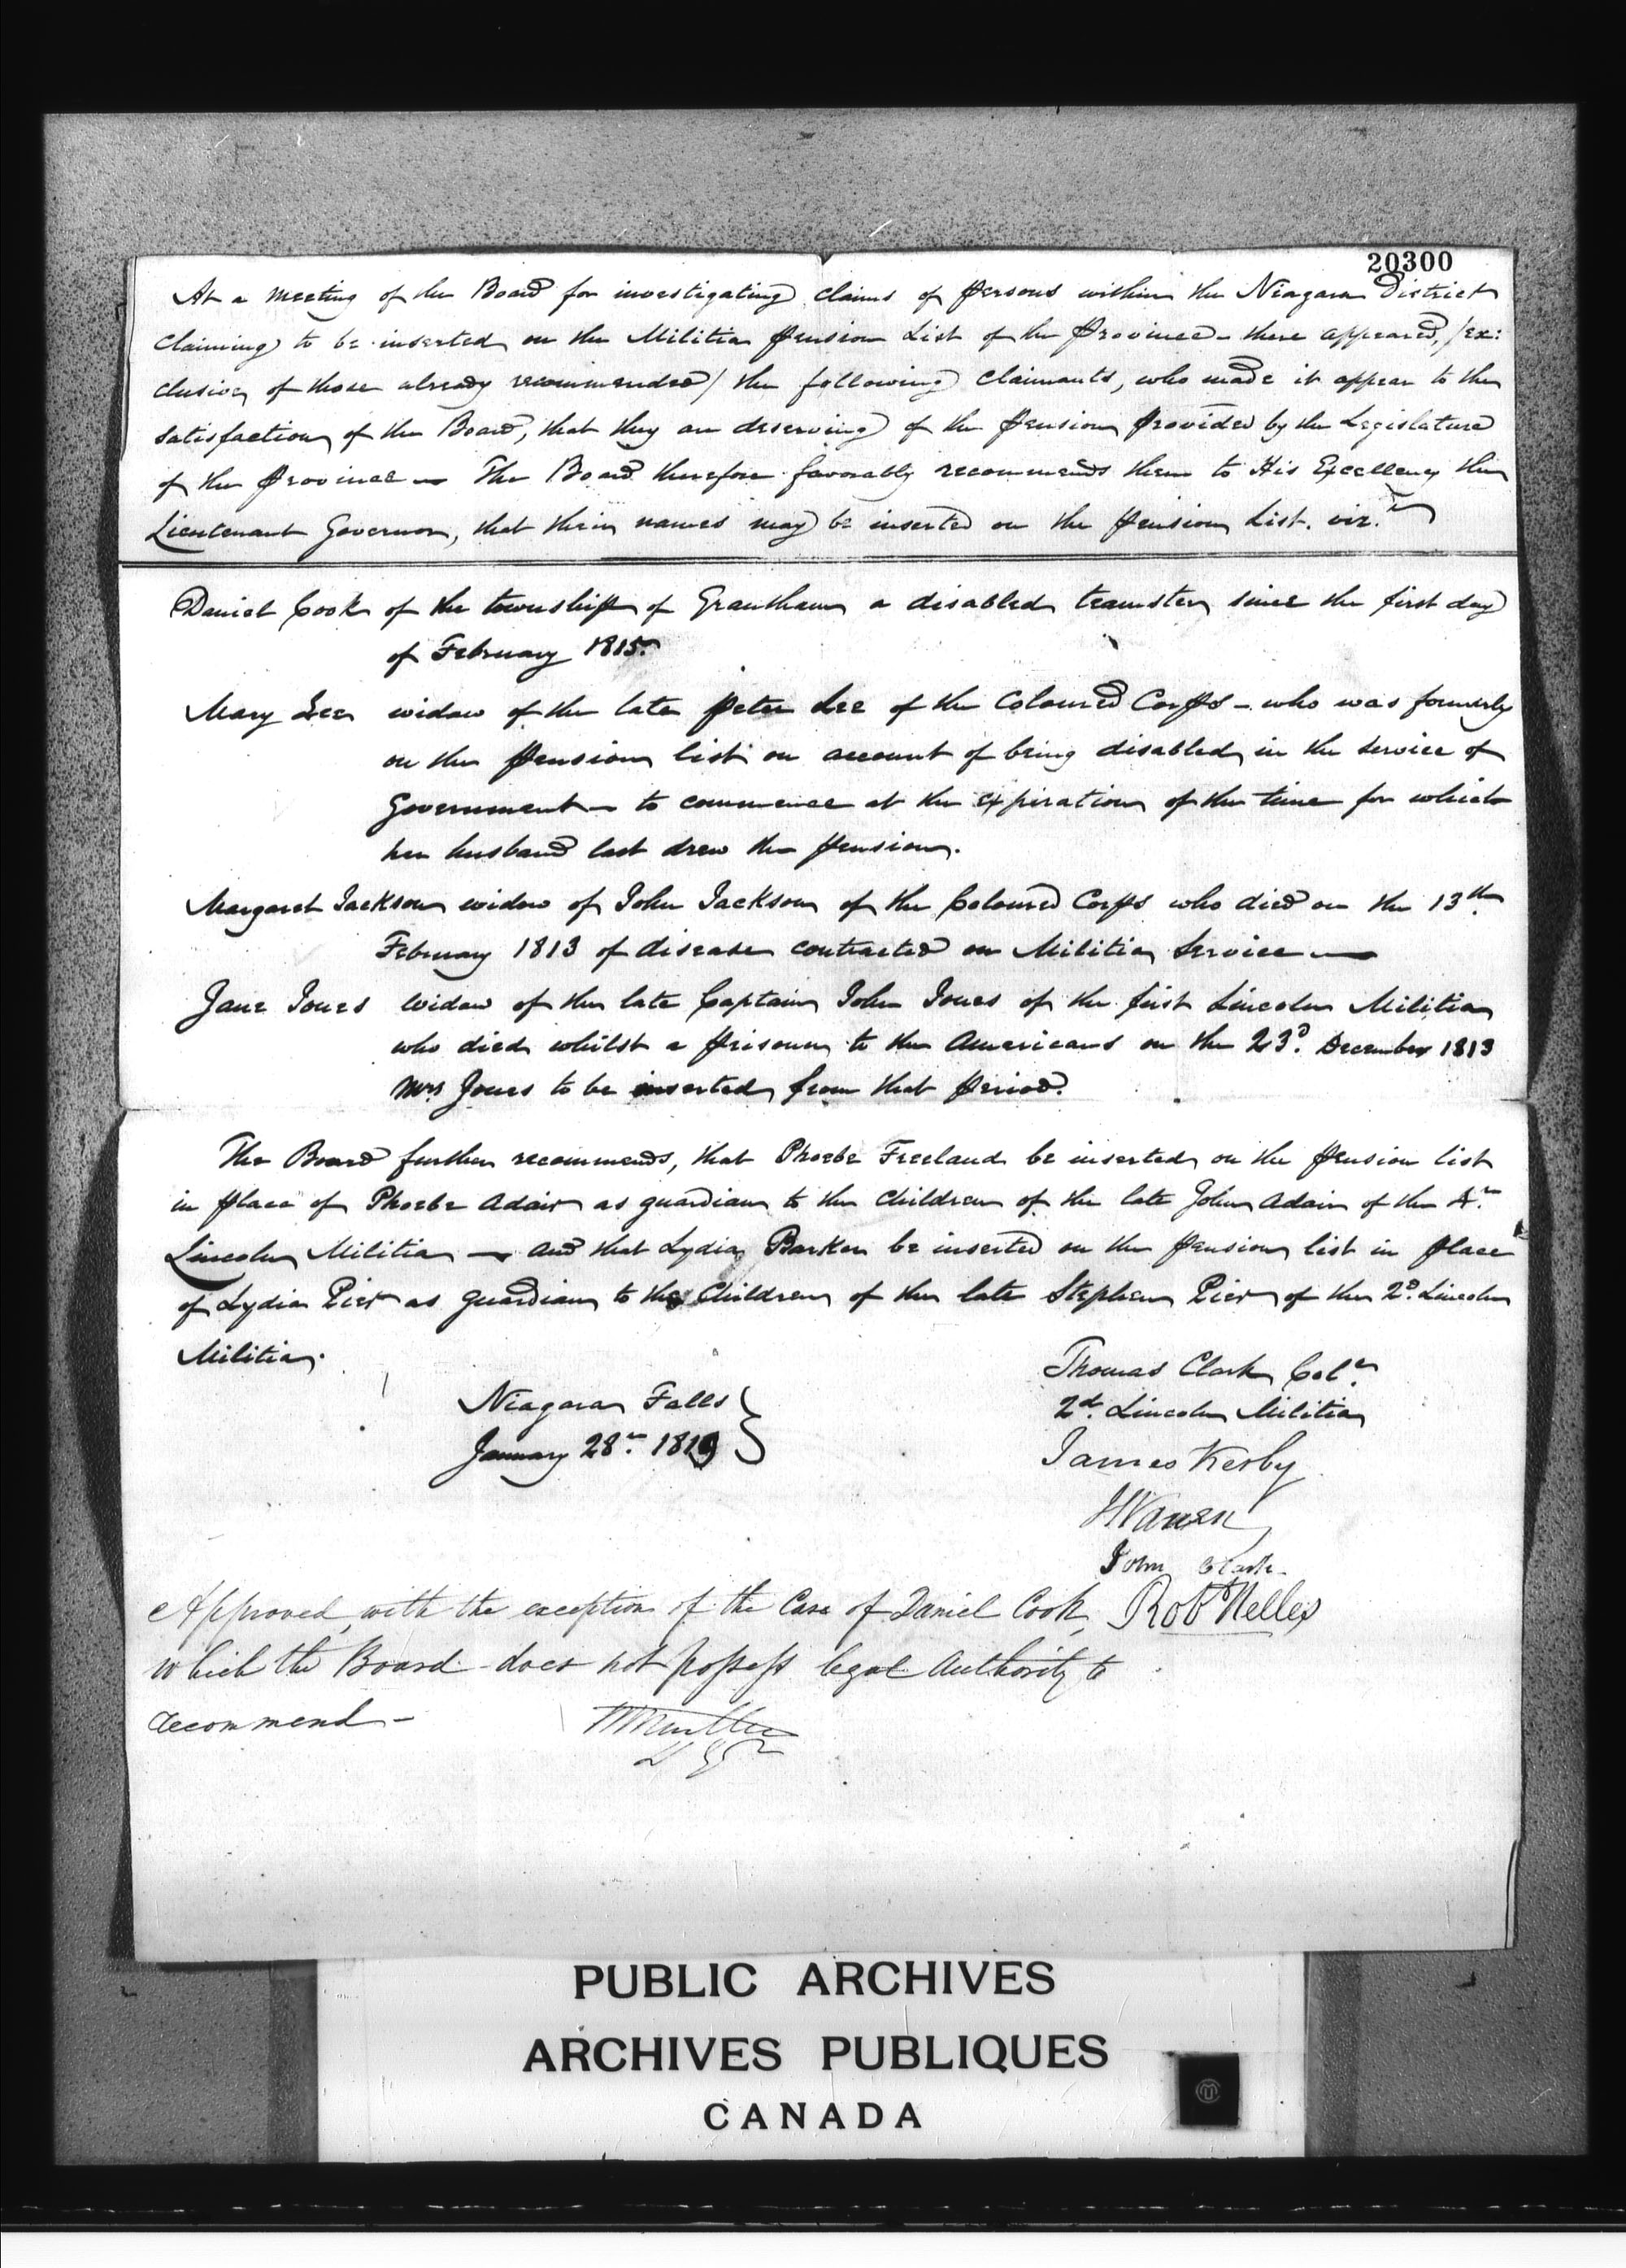 20300
At a Meeting of the Board for investigating claims of persons within the Niagara District
claiming to be inserted on the Militia Pension List of the Province - there appeared, /ex:
clusive of those already recommended/ the following claimants, who made it appear to the
satisfaction of the Board, that they are deserving of the Pension provided by the Legislature
of the Province - The Board therefore favorably recommends them to His Excellency the
Lieutenant Governor, that their names may be inserted on the Pension List. viz.
Daniel Cook of the township of Grantham a disabled teamster since the first day
of February 1815.
Mary Lee widow of the late Peter Lee of the Coloured Corps - who was formerly
on the Pension list on account of being disabled in the service of
Government - to commence at the expiration of the time for which
her husband last drew the Pension.
Margaret Jackson widow of John Jackson of the Coloured Corps who died on the 13th
February 1813 of disease contracted on Militia Service -
Jane Jones widow of the late Captain John Jones of the first Lincoln Militia
who died whilst a prisoner to the Americans on the 23d. December 1813
Mrs Jones to be inserted from that period.
The Board further recommends, that Phoebe Freeland be inserted on the pension list
in place of Phoebe Adair as guardian to the children of the late John Adair of the 4th
Lincoln Militia - and that Lydia Barker be inserted on the pension list in place
of Lydia Pier as guardian to the Children of the late Stephen Pier of the 2d. Lincoln
Militia.
Thomas Clark Col.
2d. Lincoln Militia
Niagara Falls
January 28th 1819
James Kerby
John Clark
Approved, with the exception of the Case of Daniel Cook, Robt Nelles
which the Board does not possess legal authority to
recommend -
PUBLIC ARCHIVES
ARCHIVES PUBLIQUES
CANADA